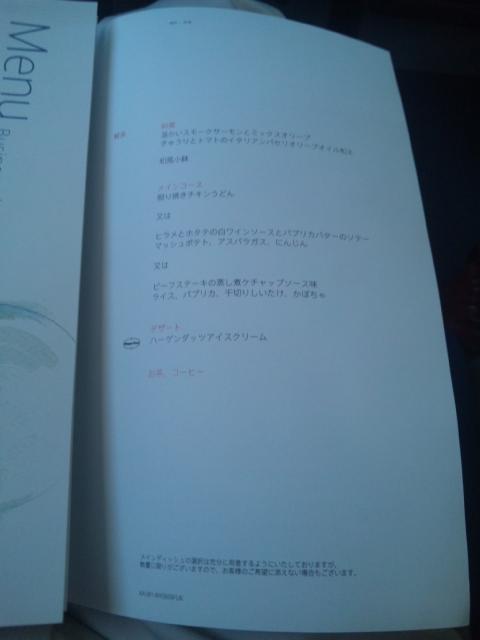 Menu
前菜
温かいスモークサーモンとミックスオリーブ
きゅうりとトマトのイタリアンパセリオリーブオイル和え
和風小鉢
メインコース
照り焼きチキンうどん
又は
ヒラメとホタテの白ワインソースとパプリカバターのソテー
マッシュポテト、アスパラガス、にんじん
又は
ビーフステーキの蒸し煮ケチャップソース味
ライス、パプリカ、千切りしいたけ、かぼちゃ
デザート
ハーゲンダッツアイスクリーム
お茶、コーヒー
メインディッシュの選択は充分に用意するようにいたしておりますが、
数量に限りがございますので、お客様のご希望に添えない場合もございます。